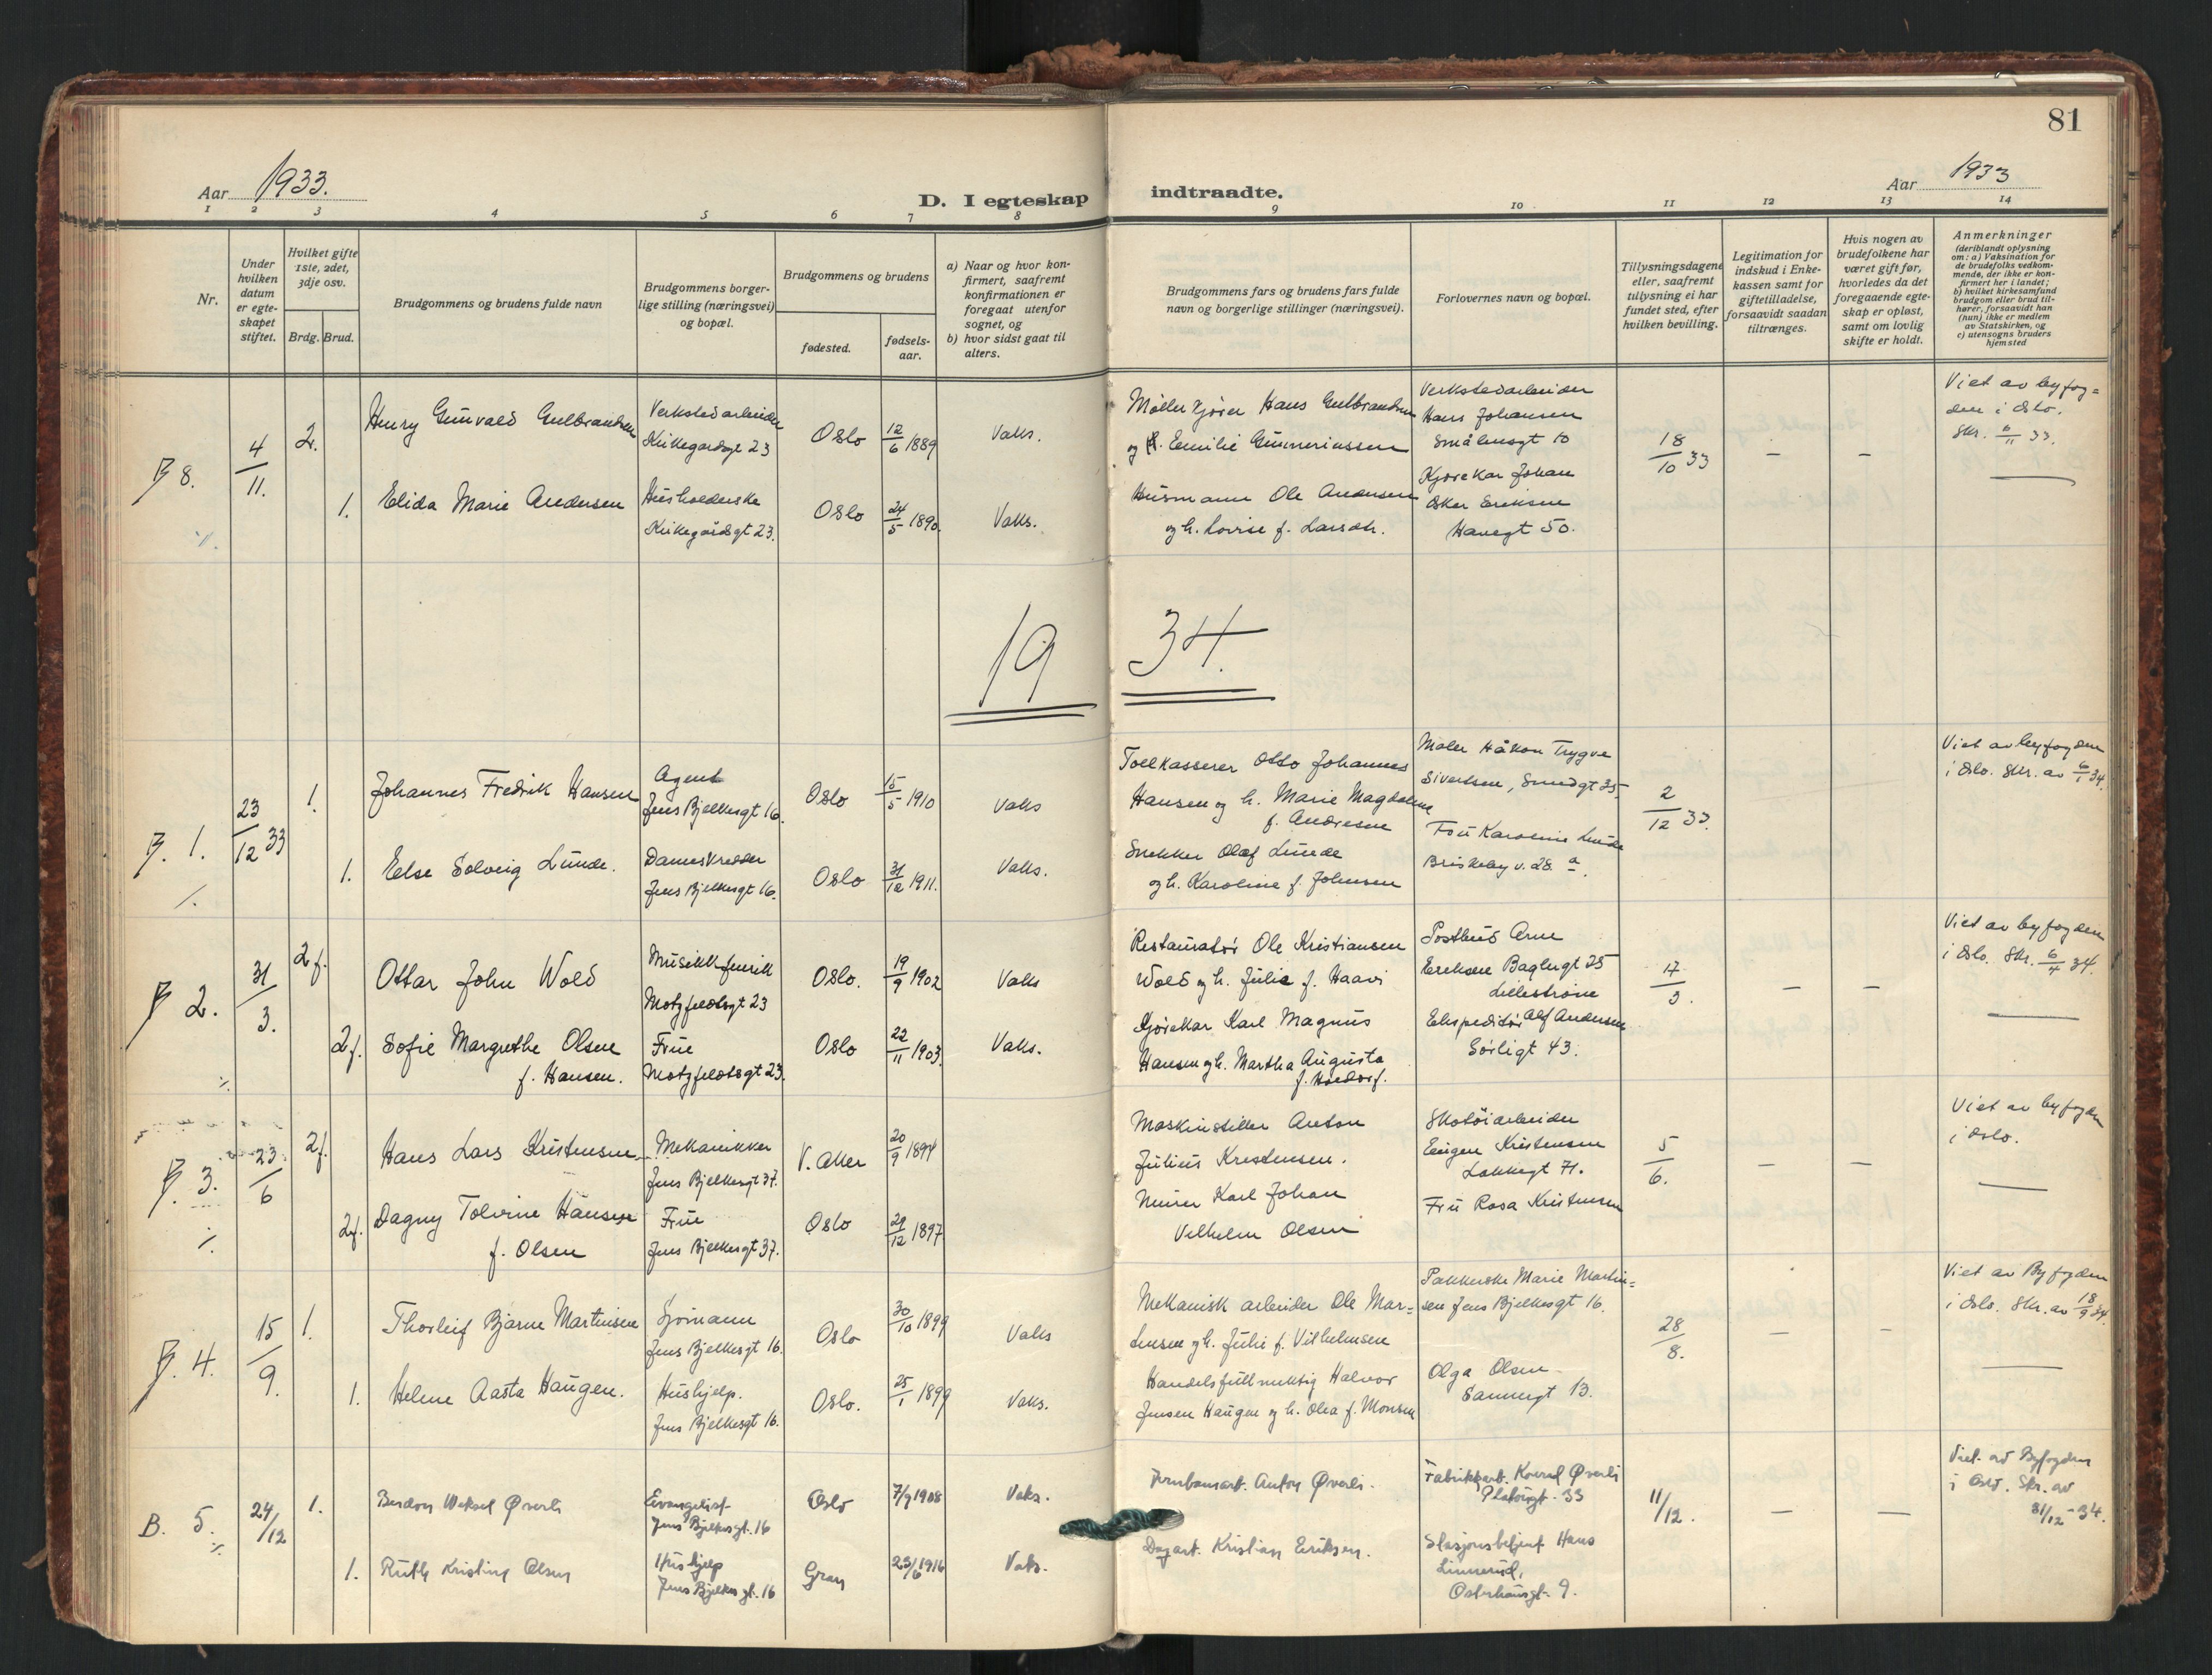 81
Aar 1933.
D. I egteskap indtraadte.
Aar 1933
1 2 3 4 5 6 7 8 9 10 11 12 13 14
Nr.
Under hvilken datum er egteskapet stiftet.
Hvilket gifte 1ste, 2det, 3dje osv.
Brdg. Brud.
Brudgommens og brudens fulde navn
Brudgommens borgerlige stilling (næringsvei) og bopæl.
Brudgommens og brudens
fødested.
fødselsaar.
a) Naar og hvor konfirmert, saafremt konfirmationen er foregaat utenfor sognet, og
b) hvor sidst gaat til alters.
Brudgommens fars og brudens fars fulde navn og borgerlige stillinger (næringsvei).
Forlovernes navn og bopæl.
Tillysningsdagene eller, saafremt tillysning ei har fundet sted, efter hvilken bevilling.
Legitimation for indskud i Enkekassen samt for giftetilladelse, forsaavidt saadan tiltrænges.
Hvis nogen av brudefolkene har været gift før, hvorledes da det foregaaende egteskap er opløst, samt om lovlig skifte er holdt.
Anmerkninger
(deriblandt oplysning om: a) Vaksination for de brudefolks vedkommende, der ikke er konfirmert her i landet; b) hvilket kirkesamfund brudgom eller brud tilhører, forsaavidt han (hun) ikke er medlem av Statskirken, og c) utensogns bruders hjemsted
B 8. 4/11. 2.
Henry Gunvald Gulbrandsen
Verkstedarbeider
Kirkegårdsgt 23
Oslo 12/6 1889 Vaks.
Møllekjører Hans Gulbrandsen
og h. Emilie Gunneriussen
Verkstedarbeider
Hans Johansen
Smålensgt 10
18/10 33 – –
Viet av byfog=
den i Oslo.
Skr. 6/11 33.
1. Elida Marie Andersen
Husholderske
Kirkegårdsgt 23.
Oslo 24/5 1890. Vaks.
Husmann Ole Andersen
og h. Lovise f. Larsdtr.
Kjørekar Johan
Oskar Eriksen
Havegt 50.
19 34.
B. 1. 23/12 33 1.
Johannes Fredrik Hansen
Agent
Jens Bjelkesgt 16.
Oslo 15/5 1910 Vaks
Tollkasserer Otto Johannes
Hansen og h. Marie Magdalene
f. Andresen
Maler Håkon Trygve
Sivertsen, Smedgt 35.
2/12 33.
Viet av byfogden
i Oslo. Skr. av 6/1 34.
1. Else Solveig Lunde.
Dameskredder
Jens Bjelkesgt 16.
Oslo 31/12 1911. Vaks.
Snekker Olaf Lunde
og h. Karoline f. Johnsen
Fru Karoline Lunde
Briskeby v. 28 a.
B 2. 31/3. 2 f.
Ottar John Wold
Musikkfenrik
Motzfeldtsgt 23
Oslo. 19/9 1902 Vaks
Restauratør Ole Kristiansen
Wold og h. Julie f. Haavi
Postbud Arne
Eriksen Baglergt 25
Lillestrøm
17/3. – –
Viet av byfogden
i Oslo. Skr. 6/4 34.
2 f. Sofie Margrethe Olsen
f. Hansen.
Frue
Motzfeldtsgt 23.
Oslo 22/11 1903. Vaks.
Kjørekar Karl Magnus
Hansen og h. Martha Augusta
Ekspeditør Alf Andersen
Sørligt 43.
B. 3. 23/6 2 f.
Hans Lars Kristensen
Mekanikker
Jens Bjelkesgt 37.
V. Aker 20/9 1894
Maskinstiller Anton
Julius Kristensen.
Skotøiarbeider
Eugen Kristensen
Lakkegt 71.
5/6. – –
Viet av byfogden
i Oslo.
2 f. Dagny Tolvine Hansen
f. Olsen
Frue
Jens Bjelkesgt 37.
Oslo 29/12 1897
Murer Karl Johan
Vilhelm Olsen
Fru Rosa Kristensen
B. 4. 15/9. 1.
Thorleif Bjarne Martinsen
Sjømann
Jens Bjelkesgt 16.
Oslo 30/10 1899 Vaks
Mekanisk arbeider Ole Mar=
tinsen og h. Julie f. Vilhelmsen
Pakkerske Marie Martin=
sen Jens Bjelkesgt 16.
28/8. – –
Viet av Byfogden
i Oslo. Skr. av 18/9 34.
1. Helene Aasta Haugen.
Hushjelp.
Jens Bjelkesgt 16.
Oslo. 25/1 1899 Vaks.
Handelsfullmektig Halvor
Jensen Haugen og h. Olea f. Monsen
Olga Olsen
Sannergt 13.
B. 5. 24/12 1.
Øverli
Evangelist
Jens Bjelkes gt. 16
Oslo 7/9 1908 Vaks.
Jernbanearb. Anton Øverli.
Fabrikkarb. Konrad Øverli
Platougt. 33
11/12. – –
Viet av Byfogden
i Oslo. Skr. av
31/12 - 34.
1. Ruth Kristine Olsen
Hushjelp
Jens Bjelkes gt. 16
Gran 23/6 1916 Vaks.
Dagarb. Kristian Eriksen.
Stasjonsbetjent Hans
Linnerud,
Osterhausgt. 9.